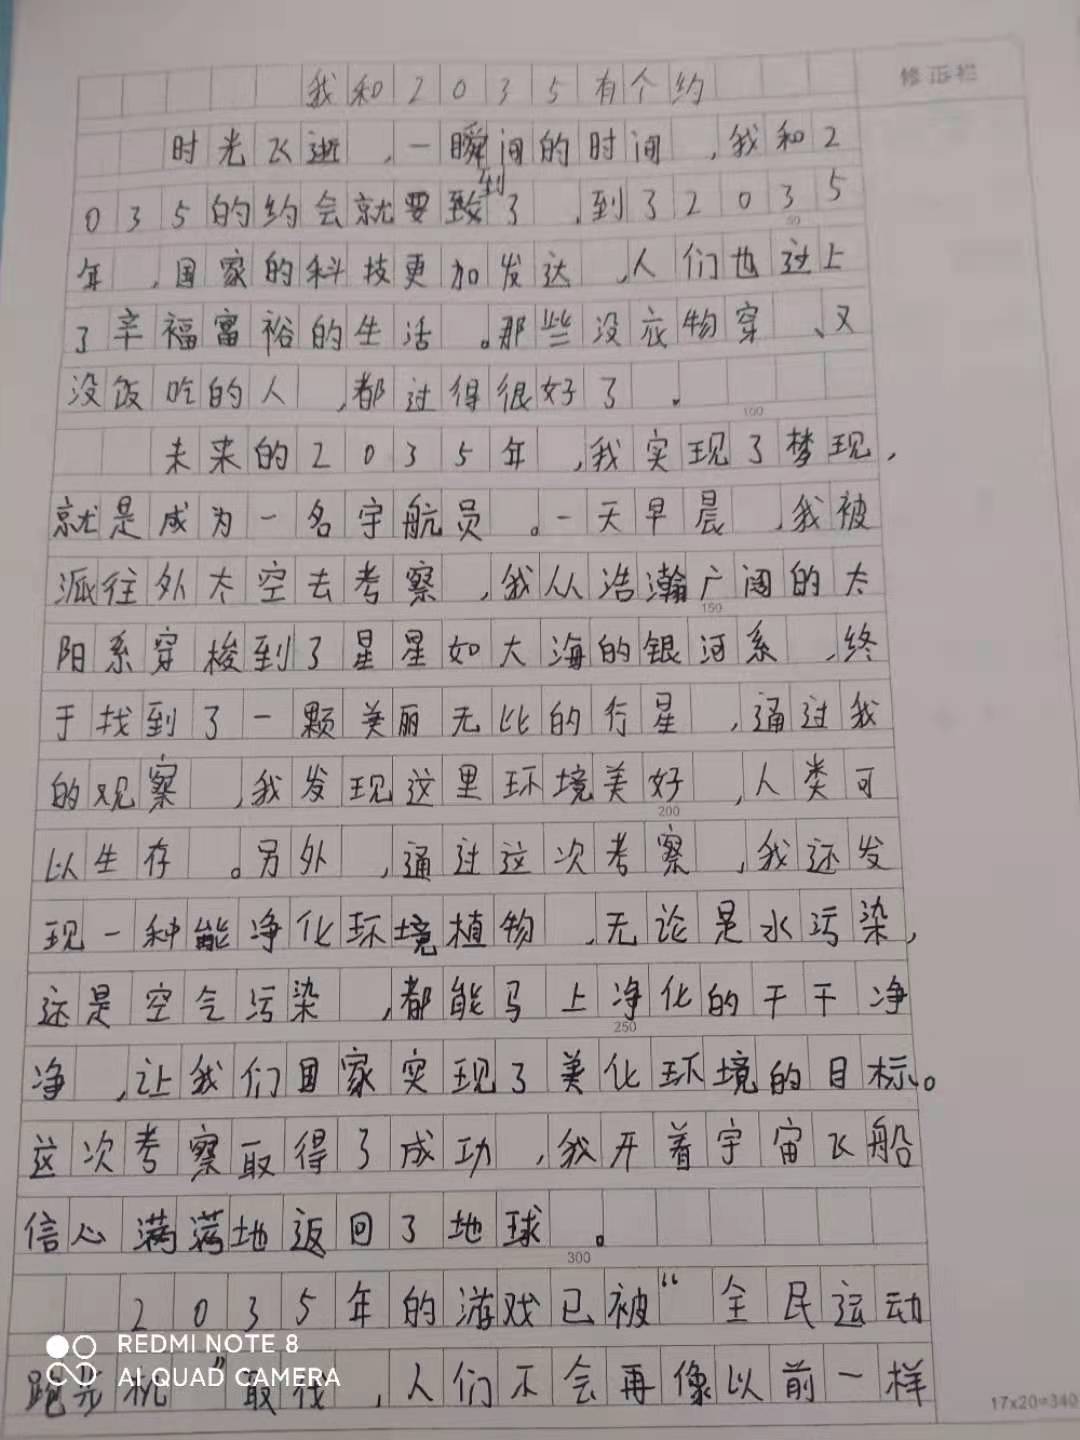 我和2035有个约
修正栏
时光飞逝,一瞬间的时间,我和2
035的约会就要到了,到了2035
50
年,国家的科技更加发达,人们也过上
了辛福富裕的生活。那些没衣物穿、又
没饭吃的人,都过得很好了。
100
未来的2035年,我实现了梦现,
就是成为一名宇航员。一天早晨,我被
派往外太空去考察,我从浩瀚广阔的太
150
阳系穿梭到了星星如大海的银河系,终
于找到了一颗美丽无比的行星,通过我
的观察,我发现这里环境美好,人类可
200
以生存。另外,通过这次考察,我还发
现一种能净化环境植物,无论是水污染,
还是空气污染,都能马上净化的干干净
250
净,让我们国家实现了美化环境的目标。
这次考察取得了成功,我开着宇宙飞船
信心满满地返回了地球。
300
2035年的游戏已被“全民运动
跑步机”取代,人们不会再像以前一样
17x20=340
REDMI NOTE 8
AI QUAD CAMERA